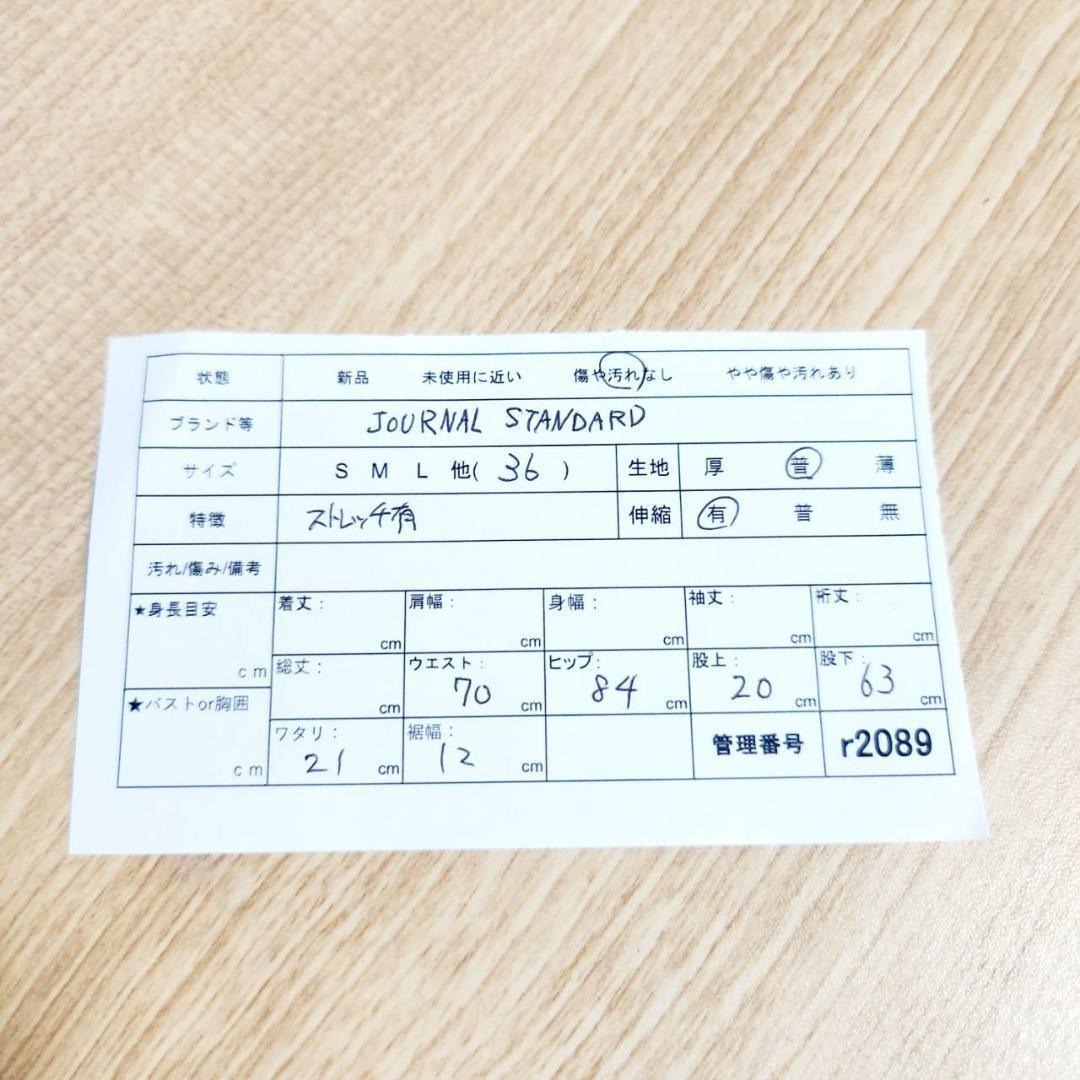 状態 新品 未使用に近い 傷や汚れなし やや傷や汚れあり
ブランド等 JOURNAL STANDARD
サイズ S M L 他( 36 ) 生地 厚 普 薄
特徴 ストレッチ有 伸縮 有 普 無
汚れ/傷み/備考
★身長目安 cm
着丈: cm 肩幅: cm 身幅: cm 袖丈: cm 裄丈: cm
総丈: cm ウエスト: 70 cm ヒップ: 84 cm 股上: 20 cm 股下: 63 cm
★バストor胸囲 cm
ワタリ: 21 cm 裾幅: 12 cm 管理番号 r2089